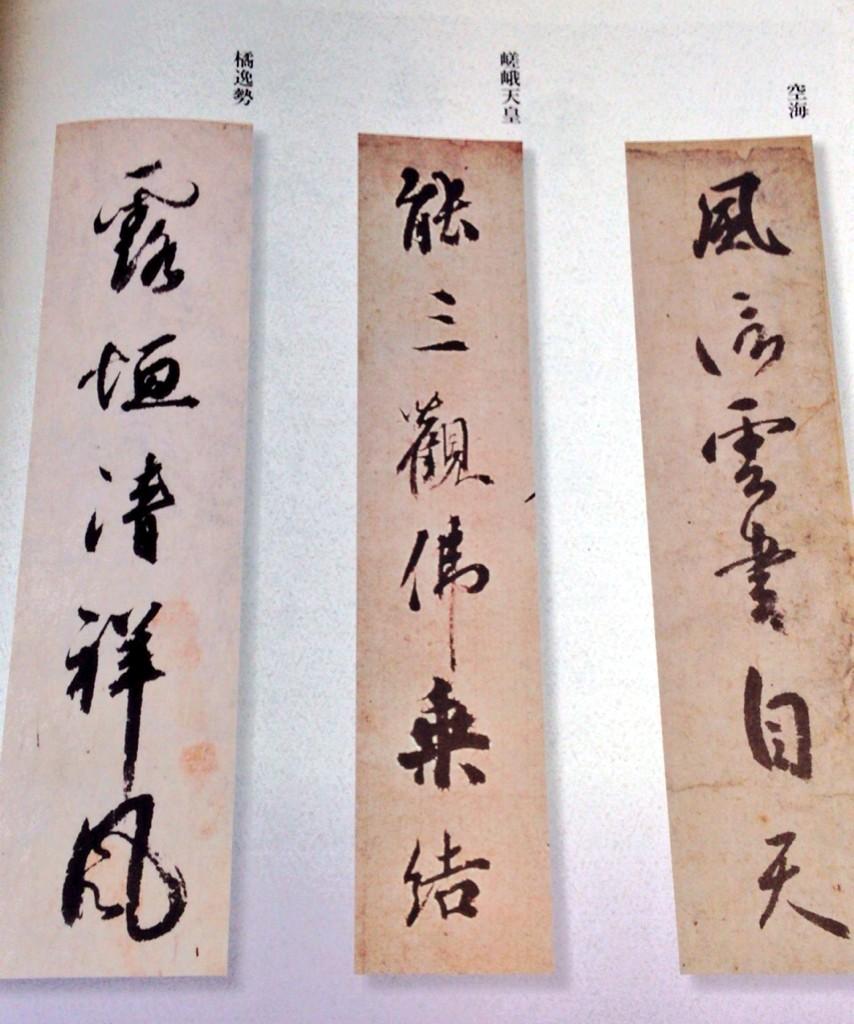 空海
風信雲書自天
嵯峨天皇
能三觀佛乗結
橘逸勢
露垣清祥風